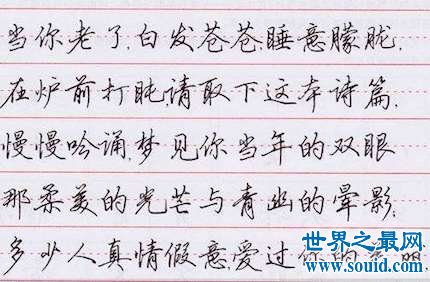 当你老了,白发苍苍,睡意朦胧,
在炉前打盹,请取下这本诗篇,
慢慢吟诵,梦见你当年的双眼
那柔美的光芒与青幽的晕影;
多少人真情假意,爱过你的
世界之最网
www.souid.com